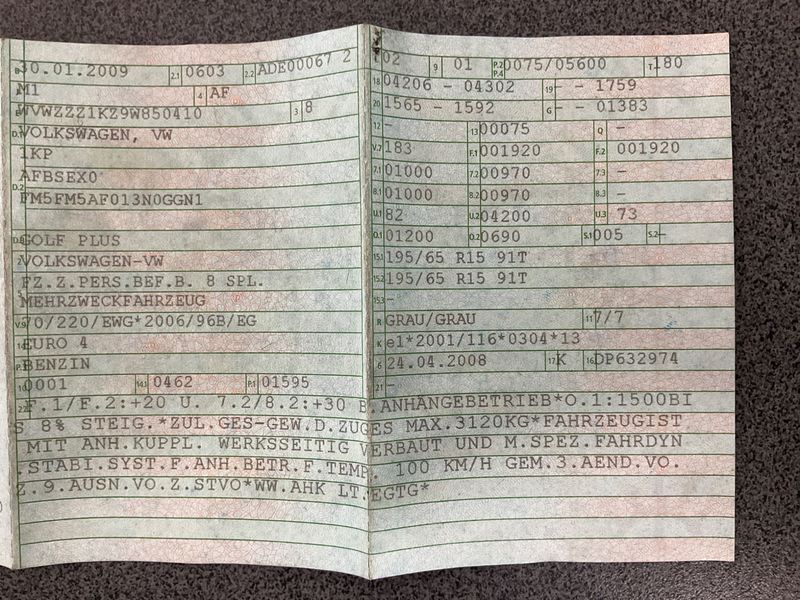 B 30.01.2009 2.1 0603 2.2 ADE00067 2
M1 4 AF
WVWZZZ1KZ9W850410 3 8
VOLKSWAGEN, VW
1KP
AFBSEX0
D.2 FM5FM5AF013N0GGN1
GOLF PLUS
VOLKSWAGEN-VW
FZ.Z.PERS.BEF.B. 8 SPL.
MEHRZWECKFAHRZEUG
V.9 70/220/EWG*2006/96B/EG
EURO 4
BENZIN
0001 14.1 0462 P.1 01595
02 9 01 P.2 P.4 0075/05600 T 180
18 04206 - 04302 19 - - 1759
20 1565 - 1592 G - - 01383
12 - 13 00075 Q -
V.7 183 F.1 001920 F.2 001920
7.1 01000 7.2 00970 7.3 -
8.1 01000 8.2 00970 8.3 -
U.1 82 U.2 04200 U.3 73
O.1 01200 O.2 0690 S.1 005 S.2 -
15.1 195/65 R15 91T
15.2 195/65 R15 91T
15.3 -
R GRAU/GRAU 11 7/7
K e1*2001/116*0304*13
6 24.04.2008 17 K 16 DP632974
21 -
22 F.1/F.2:+20 U. 7.2/8.2:+30 B.ANHÄNGEBETRIEB*O.1:1500BI
S 8% STEIG.*ZUL.GES-GEW.D.ZUGES MAX.3120KG*FAHRZEUGIST
MIT ANH.KUPPL. WERKSSEITIG VERBAUT UND M.SPEZ.FAHRDYN
.STABI.SYST.F.ANH.BETR.F.TEMP. 100 KM/H GEM.3.AEND.VO.
Z.9.AUSN.VO.Z.STVO*WW.AHK LT.EGTG*